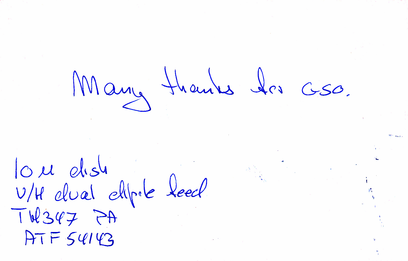 Many thanks for QSO.
10 m dish
V/H dual dipole feed
TH347 PA
ATF 54143